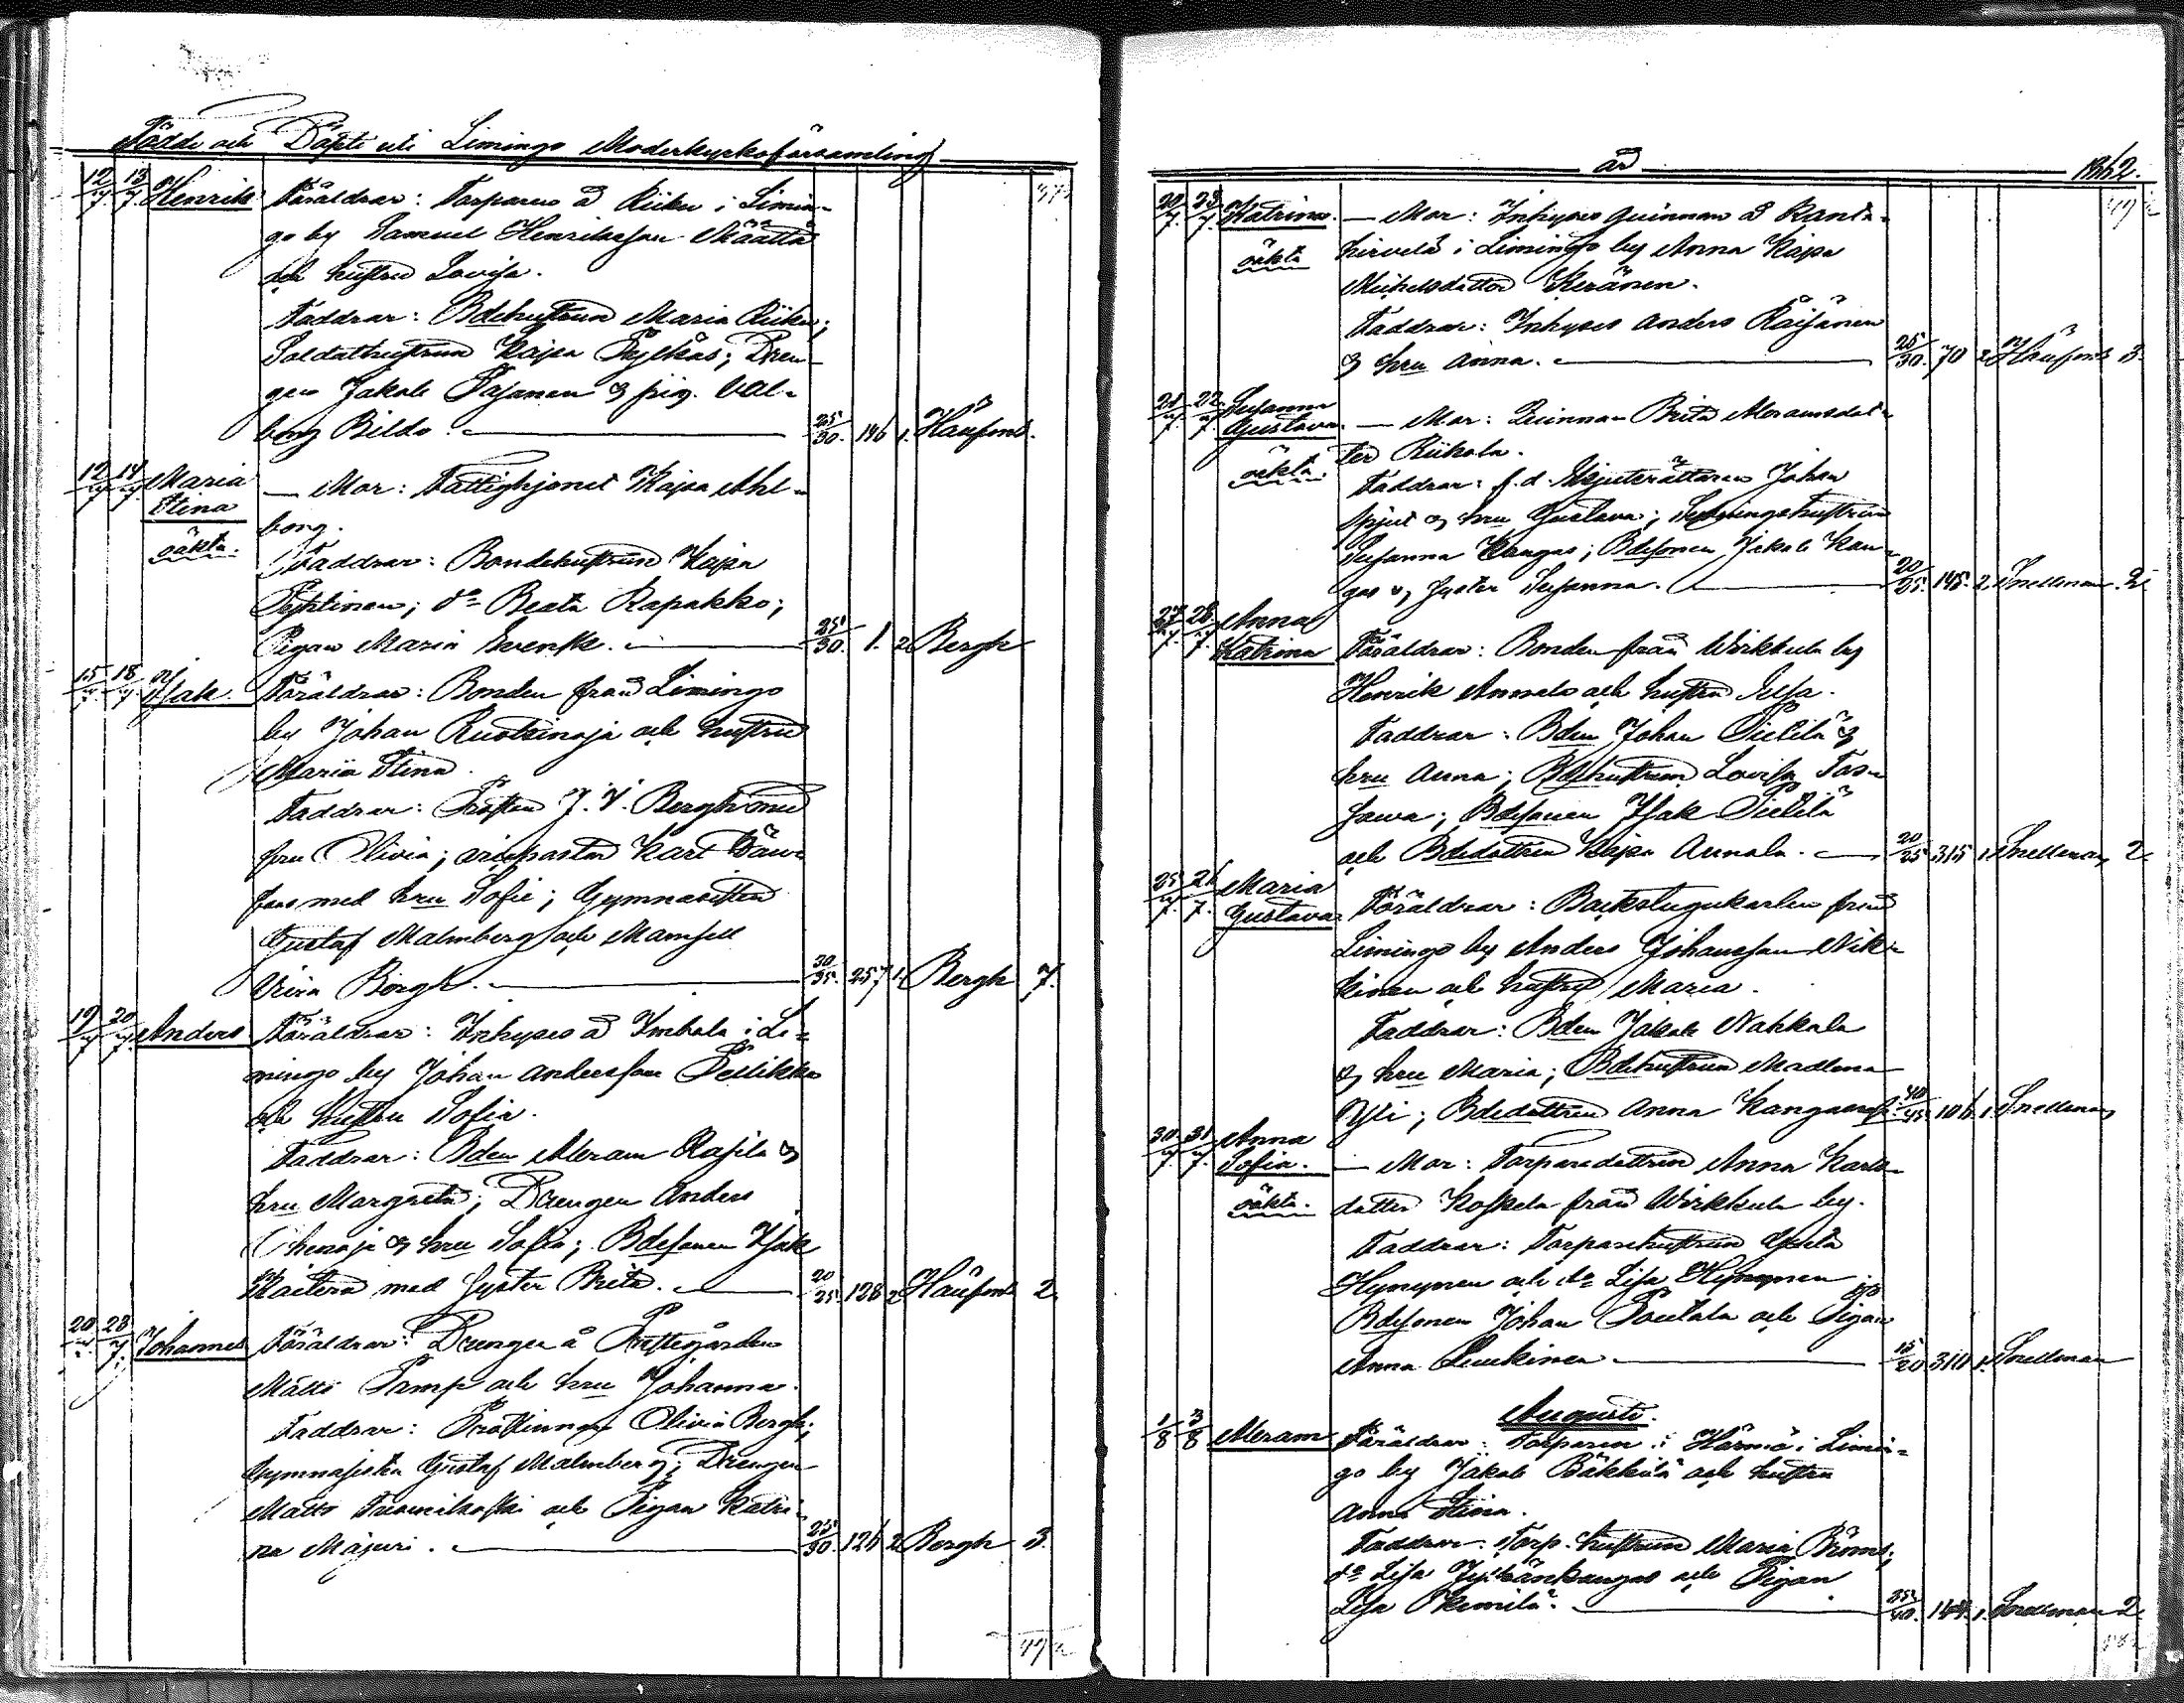 Födde och Döpte uti Limingo Moderkyrkoförsamling
12/7 13/7 Henrik Föräldrar: Torparen å Riiku i Limin-
go by Samuel Henriksson Määttä
och hustru Lovisa.
Faddrar: Bdehustrun Maria Riiku;
Soldathustrun Kajsa Pylkäs; Dren-
gen Jakob Pajanen & pig. Val-
borg Bildo. 25/30. 146 1. Häufons.
12/7 14/7 Maria — Mor: Fattighjonet Kajsa Ahl-
Stina borg.
oäkta. Faddrar: Bondehustrun Kajsa
Pyhtinen; do Beata Rapakko;
Pigan Maria 25/30. 1. 2 Bergh
15/7 18/7 Isak. Föräldrar: Bonden från Limingo
by Johan Ruotsinoja och hustru
Maria Stina.
Faddrar: Prosten J. V. Bergh med
fru Olivia; vicepastor Karl
med hru Sofie; Gymnasisten
Gustaf Malmberg och Mamsell
Bergh. 30/35. 257 1. Bergh 7.
19/7 20/7 Anders Föräldrar: Inhyses å Imbala i Li-
mingo by Johan Andersson Pellikka
och hustru Sofia.
Faddrar: Bden Meram Rasila &
hru Margreta; Drengen Anders
& hru Sofia; Bdesonen Isak
med syster Brita. 20/25. 128 2 Häufons 2.
20/7 23/7. Johannes Föräldrar: Drengen å Prestegården
Matts Pamp och hru Johanna.
Faddrar: Prostinnan Olivia Bergh;
Gymnasisten Gustaf Malmberg; Drengen
Matts och Pigan Katri-
na Majuri. 25/30. 126 2 Bergh 3.
47
år 1862.
20/7. 23/7. Katrina. — Mor: Inhyses Quinnan å Kanta-
oäkta hirvelä i Limingo by Anna Kajsa
Michelsdotter Keränen.
Faddrar: Inhyses Anders Räisänen
& hru Anna. 25/30. 70 2 Häufons 3.
21/7 22/7 Susanna
Gustava. — Mor: Quinnan Brita Meramsdot-
oäkta. ter Riikola.
Faddrar: f.d. Johan
Spjut & hru Gustava;
Susanna Kangas; Bdesonen Jakob Kan-
gas & syster Susanna. 20/25. 145. 2. Snellman 2.
27/7. 28/7 Anna
Katrina Föräldrar: Bonden från Wirkkula by
Henrik Annala och hustru
Faddrar: Bden Johan Pietilä &
hru Anna; Bdehustrun Lovisa Tas-
; Bdesonen Isak Pietilä
och Bdedottren Kajsa Annala. 20/25 315 1. Snellman 2.
25/7. 26/7. Maria
Gustava Föräldrar: Backstugukarlen från
Limingo by Anders Johansson Nik-
kinen och hustru Maria.
Faddrar: Bden Jakob Nahkala
& hru Maria; Bdehustrun Madlena
Yli; Bdedottren Anna 40/45. 106 1. Snellman
30/7. 31/7. Anna
Sofia. — Mor: Torparedottren Anna Karls-
oäkta. dotter Koskela från Wirkkula by.
Faddrar: Torparehustrun Greta
Hyyrynen och do Lisa Hyyrynen;
Bdesonen Johan Pautala och Pigan
Anna Luukinen 15/20 310 1. Snellman
Augusti.
1/8 3/8 Meram Föräldrar: Torparen i Härmä i Limin-
go by Jakob Bäkkilä och hustru
Anna Stina.
Faddrar: Torp. hustrun Maria
do Lisa och Pigan
Lisa 35/40. 144. 1. Snellman 2.